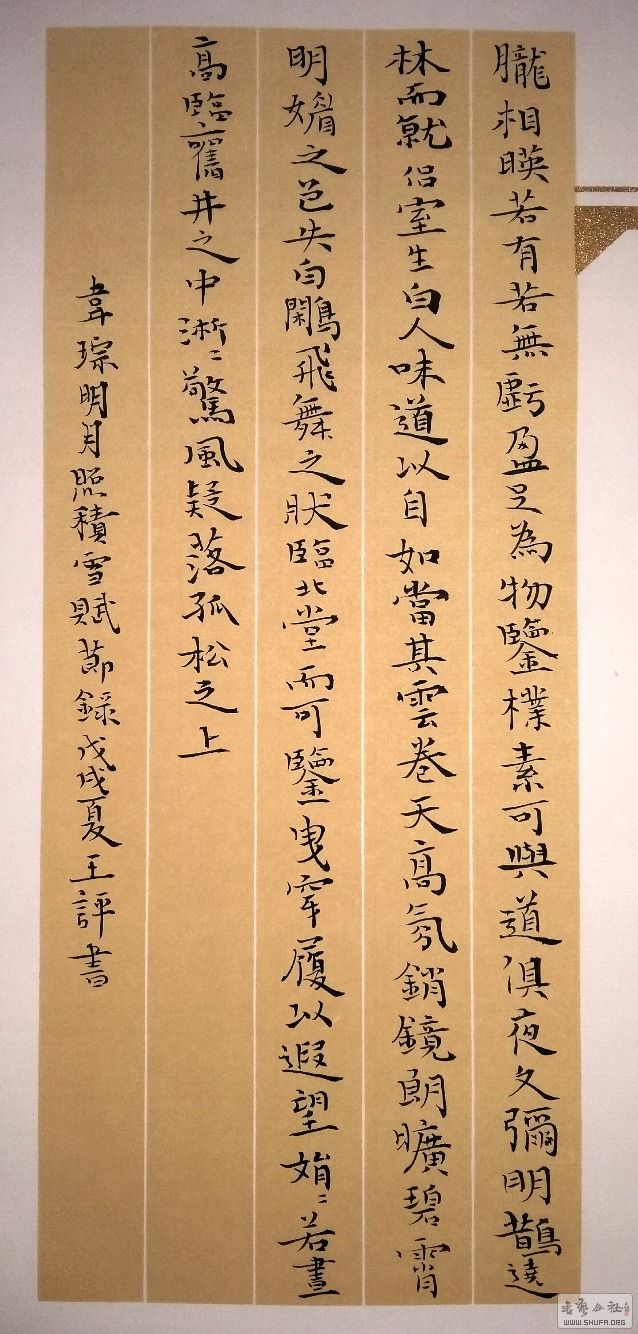 朧相暎若有若無虧盈足為物鑒樸素可與道俱夜久弥明鵲遶
林而就侣室生白人味道以自如當其雲卷天高氛銷鏡朗曠碧霄
明媚之色失白鷴飛舞之狀臨北堂而可鑒曳穿履以遐望娟〻若晝
高臨舊井之中淅〻驚風疑落孤松之上
韋琮明月照積雪賦節錄戊戌夏王評書
WWW.SHUFA.ORG